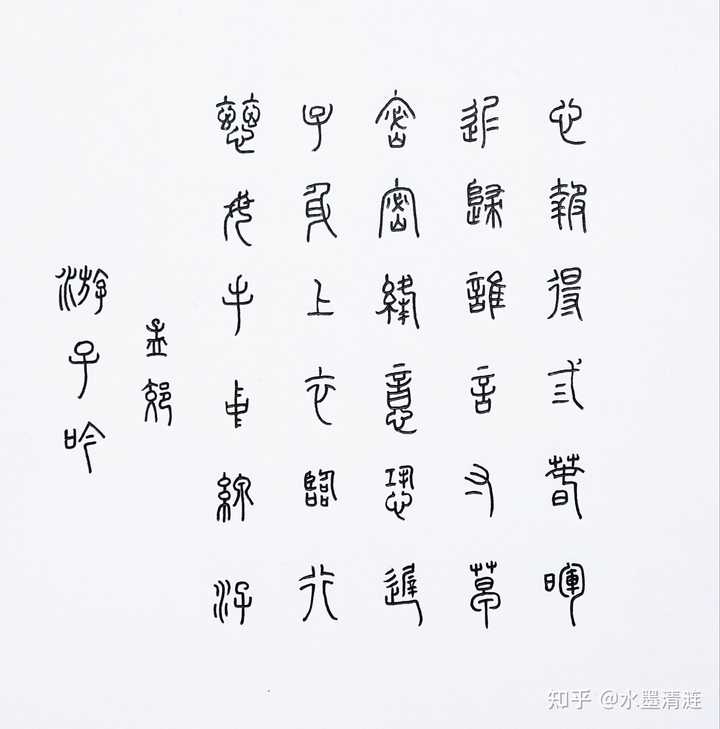 游子吟
孟郊
慈母手中線游
子身上衣臨行
密密縫意恐遲
遲歸誰言寸草
心報得弎春暉
知乎 @水墨清涟